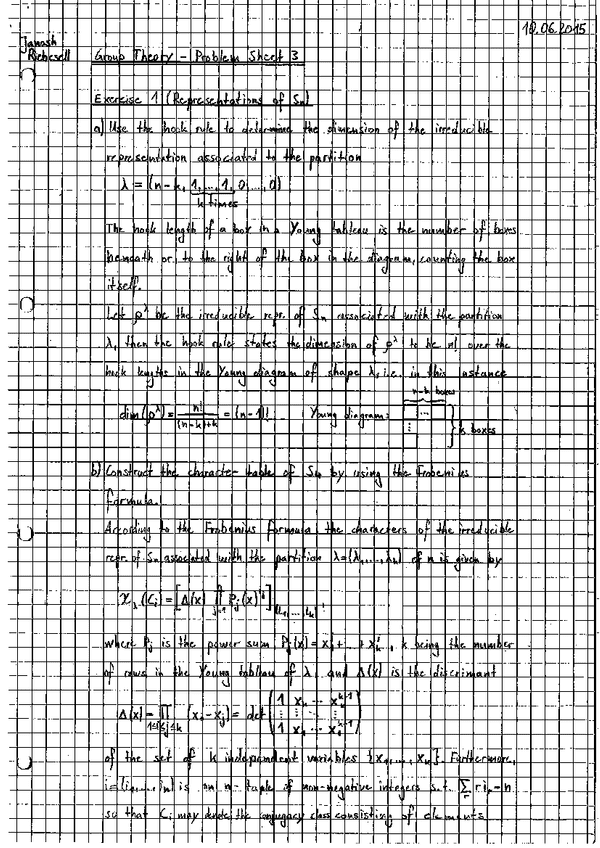 10.06.2015
Janosh
Riebesell
Group Theory – Problem Sheet 3
Exercise 1 (Representations of Sₙ)
a) Use the hook rule to determine the dimension of the irreducible
representation associated to the partition
λ = (n-k, 1,...,1, 0,...,0)
k times
The hook length of a box in a Young tableau is the number of boxes
beneath or to the right of the box in the diagram, counting the box
itself.
Let ρ^λ be the irreducible repr. of Sₙ associated with the partition
λ, then the hook rule states the dimension of ρ^λ to be n! over the
hook lengths in the Young diagram of shape λ, i.e. in this instance
dim(ρ^λ) = n!/((n-k)+k) = (n-1)! Young diagram: n-k boxes ... ⋮ } k boxes
b) Construct the character table of S₄ by using the Frobenius
formula.
According to the Frobenius formula, the characters of the irreducible
repr. of Sₙ associated with the partition λ=(λ₁,...,λₖ) of n is given by
χ_λ(C_i) = [Δ(x) ∏_{j=1} P_j(x)^{i_j}]_{(l₁,...,lₖ)},
where P_j is the power sum P_j(x) = x₁^j + ... + xₖ^j, k being the number
of rows in the Young tableau of λ and Δ(x) is the discrimant
Δ(x) = ∏_{1≤i≤j≤k} (x_i - x_j) = det (1 xₖ ... xₖ^{k-1} ⋮ ⋮ ⋮ 1 x₁ ... x₁^{k-1})
of the set of k independent variables {x₁,..., xₖ}. Furthermore,
i=(i₁,...,iₙ) is an n-tuple of non-negative integers s.t. Σ_r r i_r = n
so that C_i may denote the conjugacy class consisting of elements